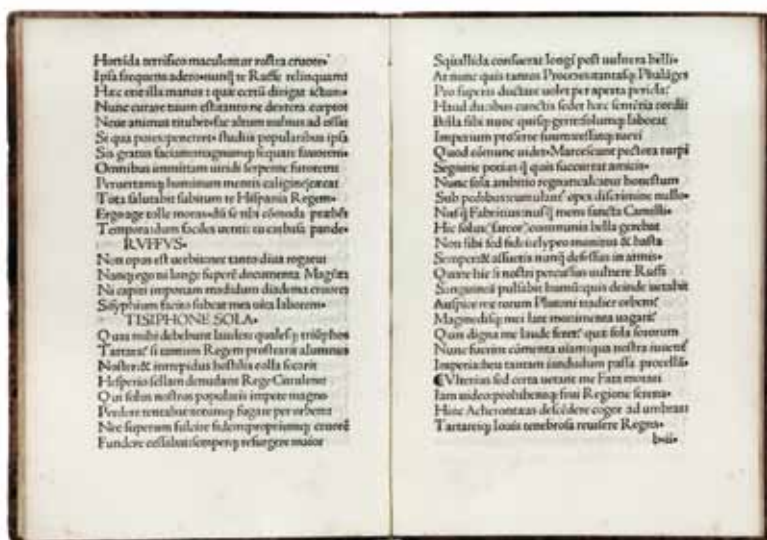 Horrida terrifico maculentur rostra cruore.
Ipsa frequens adero. nunq̃ te Ruffe relinquam
Hæc etenim illa manus quæ certũ dirigat ictum.
Nunc curare tuum est tanto ne dextera cœpto
Neue animus titubet. fac altum uulnus ad ossa
Se qua potex penetret. studiis popularibus ipsa
Sis gratus faciam magnumq; sequare fauorem.
Omnibus immittam uiridi serpente furorem
Peruertamq; hominum mentis caligine
Tota salutabit subitum te Hispania Regem.
Ergo age tolle moras. dũ se tibi cõmoda præbẽt
Tempora. dum faciles uenti. tu carbasa pande.
RVFFVS.
Non opus est uerbis. nec tanto diua rogatu
Nanq; ego ni longe superẽ documenta Magistra
Ni capiti imponam madidum diadema cruore
Sisyphium facito subeat mea uita laborem.
TISIPHONE SOLA.
Quas mihi debebunt laudes quales q; triũphos
Tartara si tantum Regem prostrarit alumnus
Noster & intrepidus hostilia colla secarit
Hesperio sellam denudans Rege Curulem
Qui solus nostros popularis impete magno
Perdere tentabat totumq; fugare per orbem
Nec superum fulcire fidem propriumq; cruorẽ
Fundere cessabat semperq; resurgere maior
Squallida consuerat longi post uulnera belli.
At nunc quis tantos Proceres tantasq; Phalãges
Pro superis ductare uolet per aperta pericla
Haud dubibus cunctis sedet hæc sentẽtia cordi
Bella sibi nunc quisq; gerit solumq; laborat
Imperium proferre suum
Quod cõmune uides. Marcescunt pectora turpi
Segnitie potius q̃ quis succurrat amicis.
Nunc sola ambitio regnat calcatur honestum
Sub pedibus cumulant opes discrimine nullo.
Nusq̃ Fabritius nusq̃ mens sancta Camilli.
Hic solus (fateor) communia bella gerebat
Non sibi sed fidei clypeo munitus & hasta
Semper & assuetis nunq̃ defessus in armis.
Quare hic si nostri percussus uulnere Ruffi
Sanguinea pulsabit humũ quis deinde uetabit
Auspice me totum Plutoni tradier orbem
Magnedisq; mei late monimenta uagari
Quin digna me laude feret quæ sola sororum
Nunc fuerim cõmenta uiam qua nostra iuuent
Imperia heu tantam iandudum passa procellã.
Vlterius sed certa uetant me Fata morari
Iam uideo prohibentq; frui Regione serena.
Hinc Acherontæas descẽdere cogor ad umbras
Tartareiq; Iouis tenebrosa reuisere Regna.
b.iii.